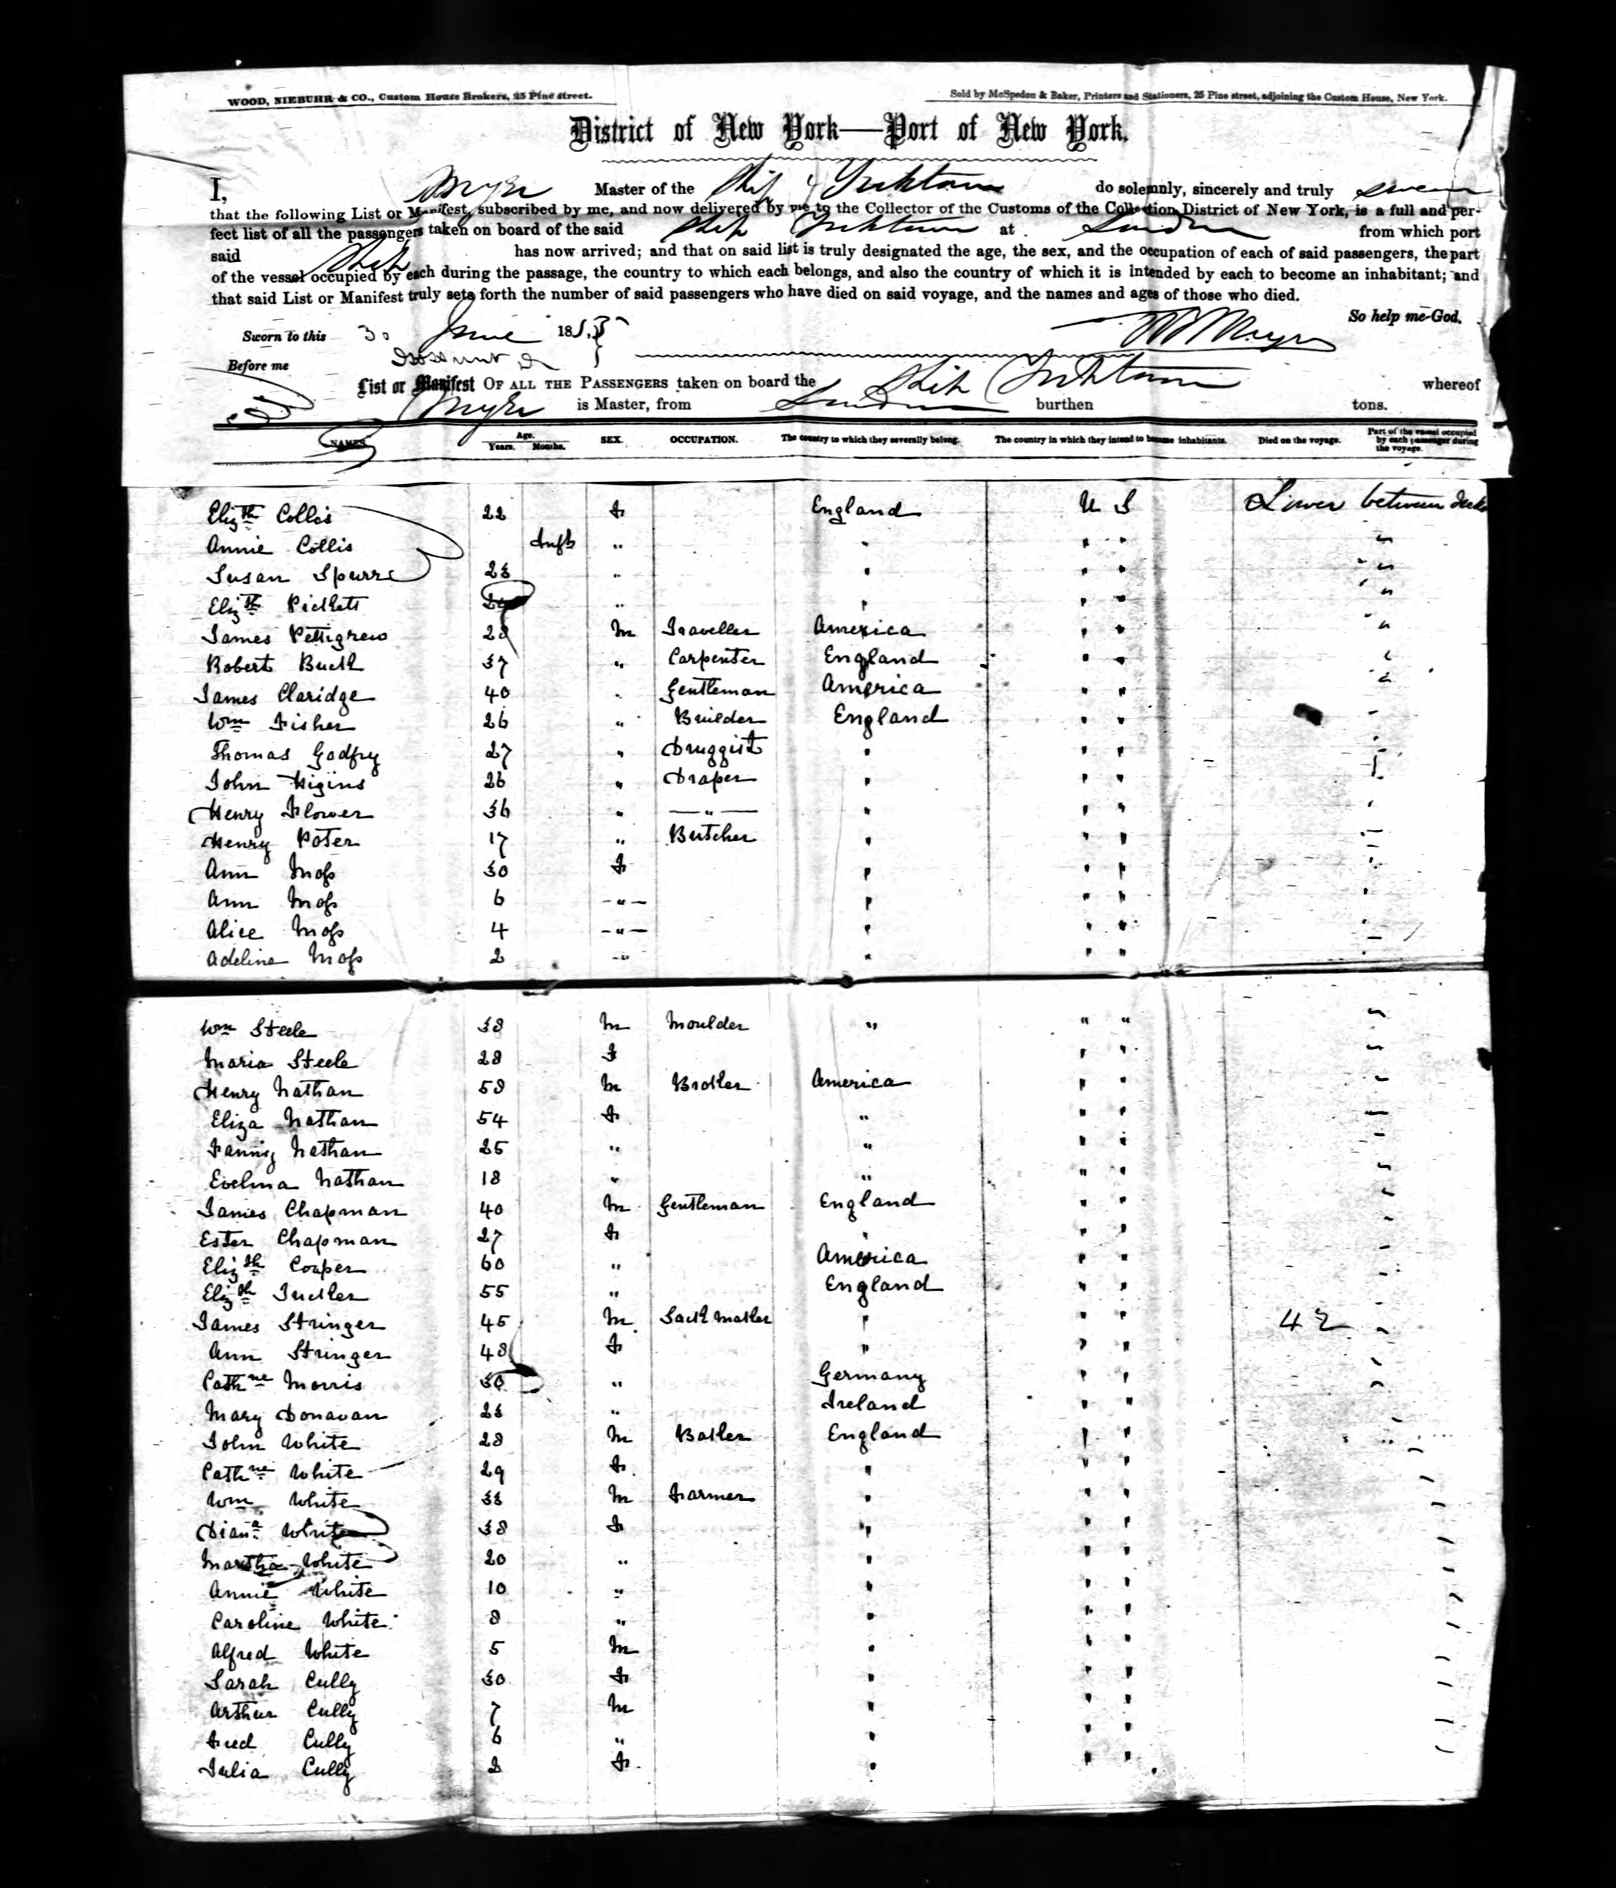 WOOD, NIEBUHR & CO., Custom House Brokers, 25 Pine street.
Sold by McSpedon & Baker, Printers and Stationers, 25 Pine street, adjoining the Custom House, New York.
District of New York—Port of New York.
I, Master of the Ship Yorktown do solemnly, sincerely and truly swear
that the following List or Manifest, subscribed by me, and now delivered by me to the Collector of the Customs of the Collection District of New York, is a full and per-
fect list of all the passengers taken on board of the said Ship Yorktown at London from which port
said Ship has now arrived; and that on said list is truly designated the age, the sex, and the occupation of each of said passengers, the part
of the vessel occupied by each during the passage, the country to which each belongs, and also the country of which it is intended by each to become an inhabitant; and
that said List or Manifest truly sets forth the number of said passengers who have died on said voyage, and the names and ages of those who died.
So help me God.
Sworn to this 30 June 185
Before me
List or Manifest OF ALL THE PASSENGERS taken on board the Ship Yorktown whereof
is Master, from London burthen tons.
NAMES. Age. Years. Months. SEX. OCCUPATION. The country to which they severally belong. The country in which they intend to become inhabitants. Died on the voyage. Part of the vessel occupied by each passenger during the voyage.
Elizth Collis 22 F England U S Lower between decks
Annie Collis Inft " " " " "
Susan Spurre 23 " " " " "
Elizth Pickett " " " " "
James Pettigrew 28 M Traveller America " " "
Robert Buck 37 " Carpenter England " " "
James Claridge 40 " Gentleman America " " "
Wm Fisher 26 " Builder England " " "
Thomas Godfry 27 " Druggist " " " "
John Higins 26 " Draper " " " "
Henry Flower 36 " — " — " " " "
Henry Pater 17 " Butcher " " " "
Ann Moss 30 F " " " "
Ann Moss 6 - " - " " " "
Alice Moss 4 - " - " " " "
Adeline Moss 2 - " " " " "
Wm Steele 38 M Moulder " " " "
Maria Steele 28 F " " "
Henry Nathan 58 M Broker America " " "
Eliza Nathan 54 F " " " "
Fanny Nathan 25 " " " " "
Evelina Nathan 18 " " " " "
James Chapman 40 M Gentleman England " " "
Ester Chapman 27 F " " " "
Elizth Cooper 60 " America " " "
Elizth Tucker 55 " England " " "
James Stringer 45 M Sack Maker " " " 42 "
Ann Stringer 48 F " " " "
Cathne Morris 30 " Germany " " "
Mary Donavan 23 " Ireland " " "
John White 28 M Baker England " " "
Cathne White 29 F " " " "
Wm White 33 M Farmer " " " "
Diana White 38 F " " " "
Martha White 20 " " " " "
Annie White 10 " " " " "
Caroline White 8 " " " " "
Alfred White 5 M " " " "
Sarah Cully 30 F " " " "
Arthur Cully 7 M " " " "
Fred Cully 6 " " " " "
Julia Cully 2 F " " "